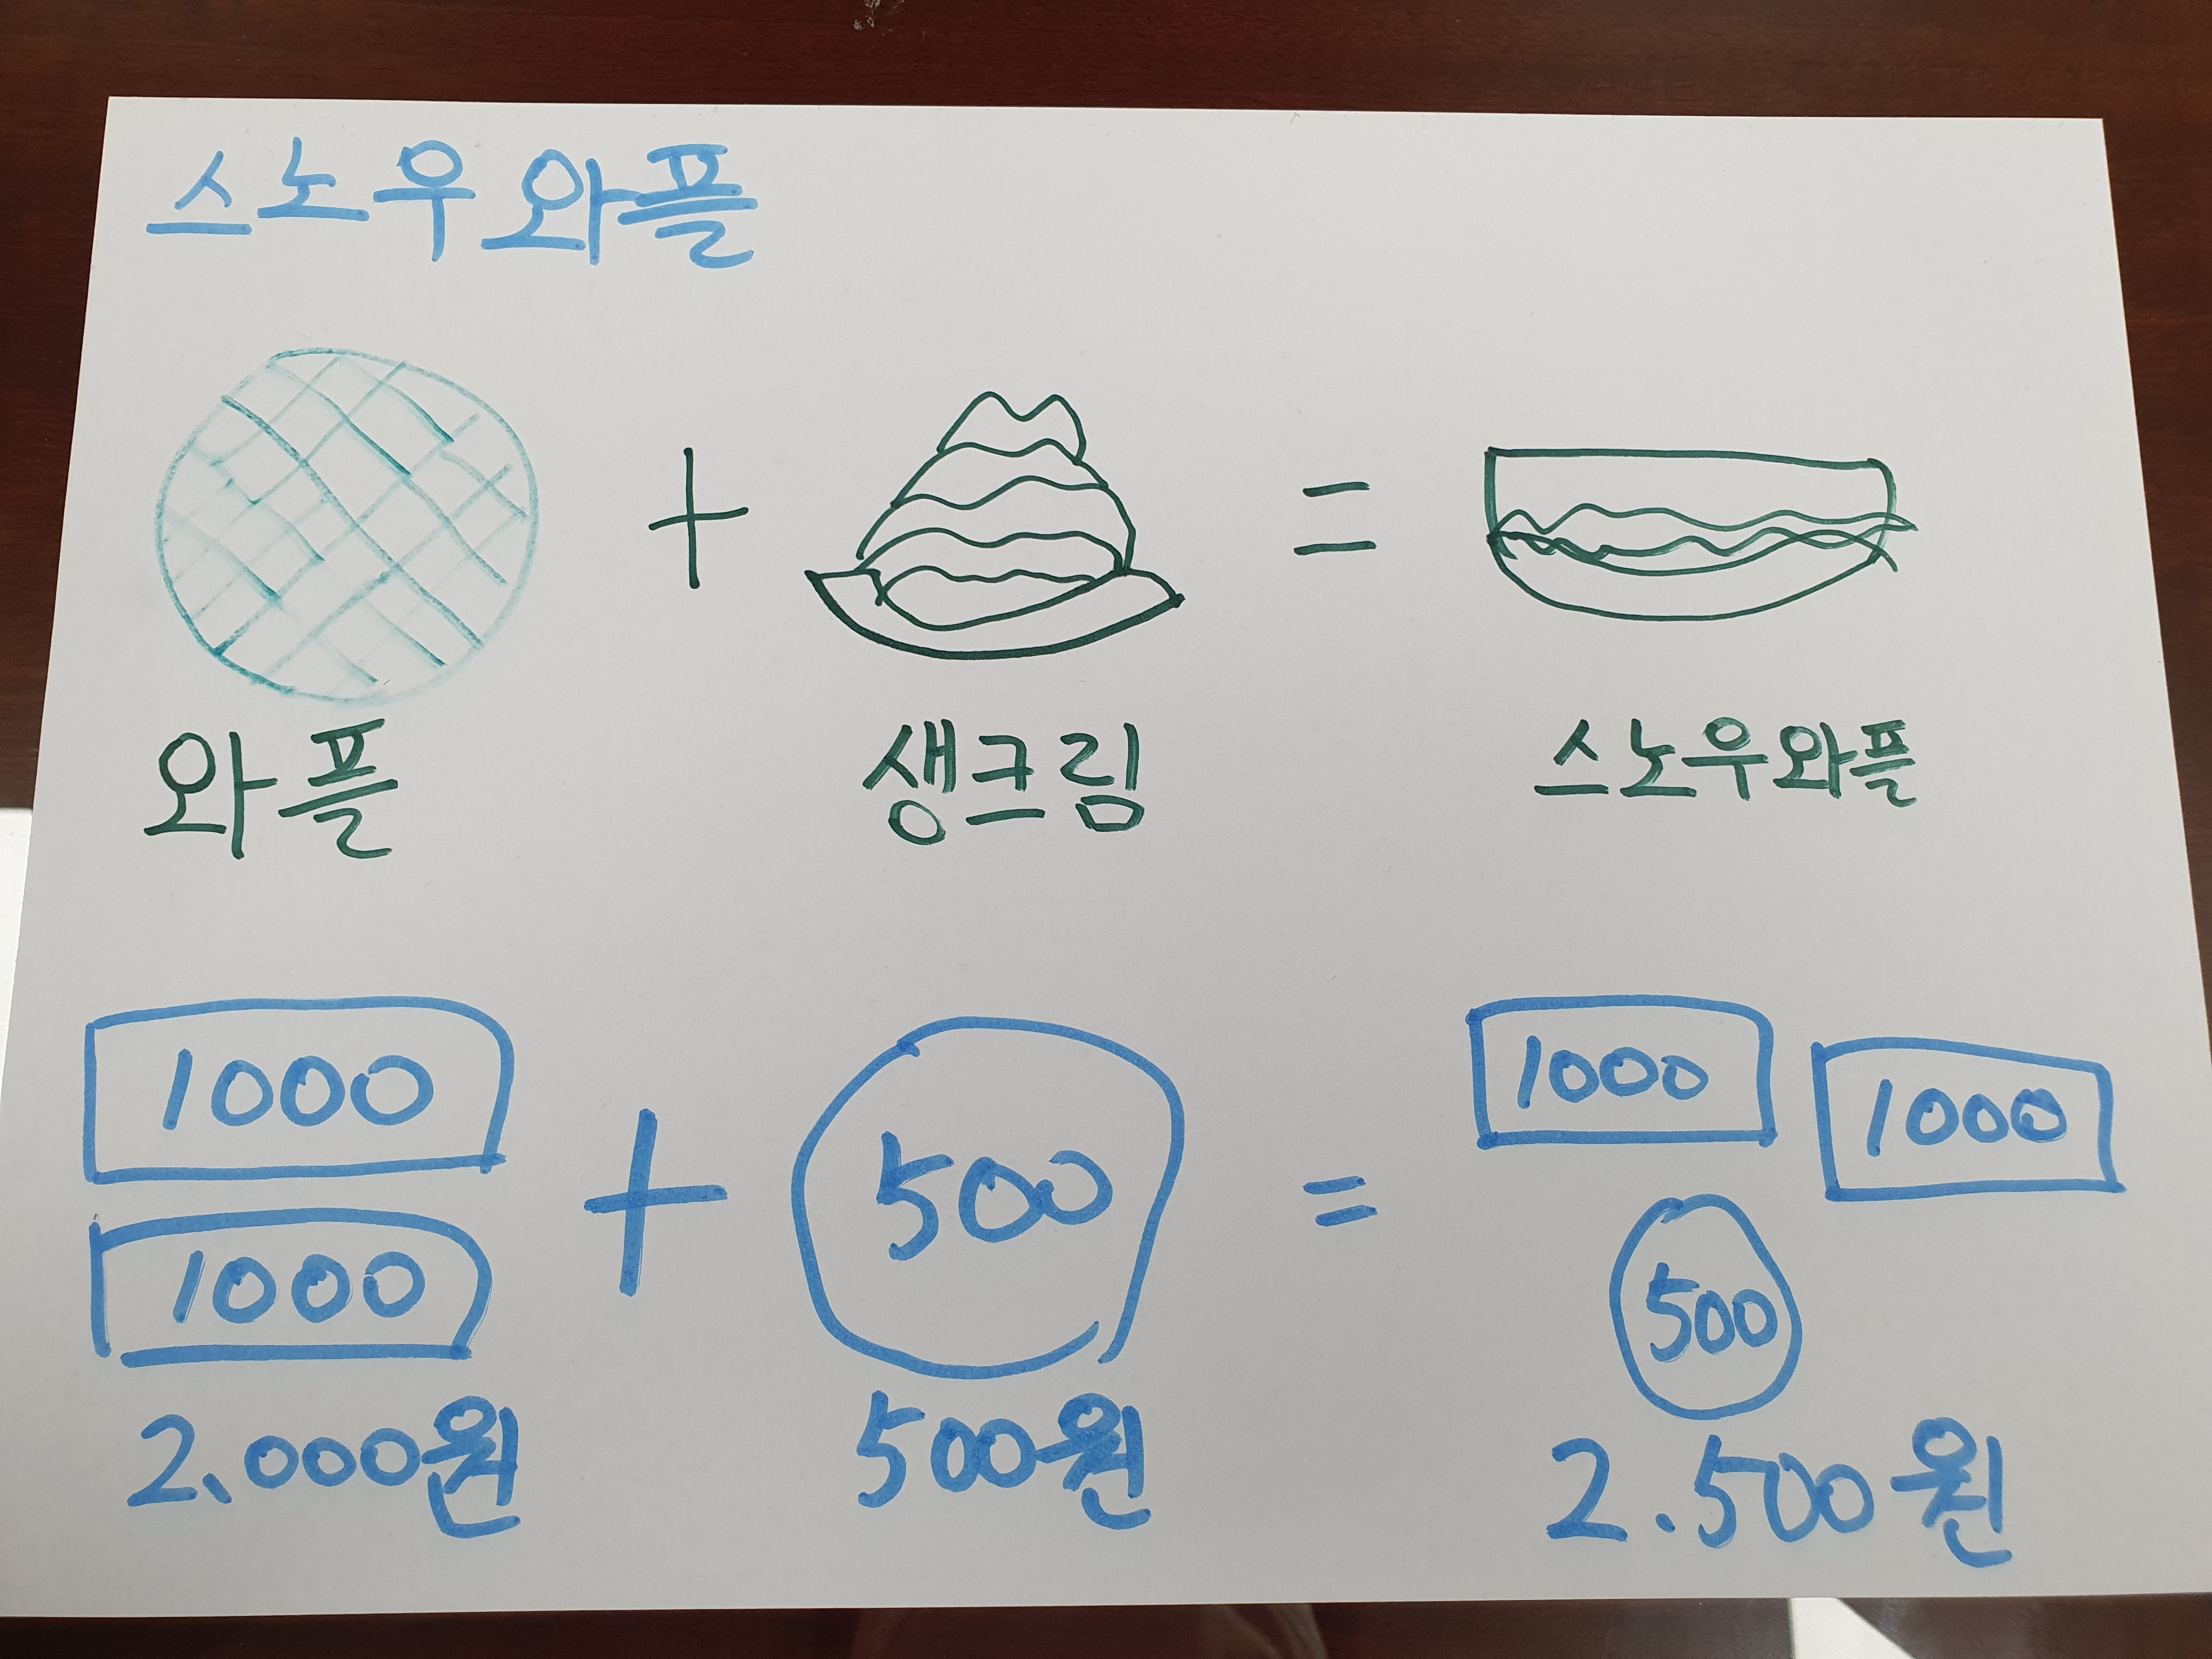 스노우와플
+ =
와플 생크림 스노우와플
1000 1000 1000
+ 500 =
1000 500
2,000원 500원 2.500원